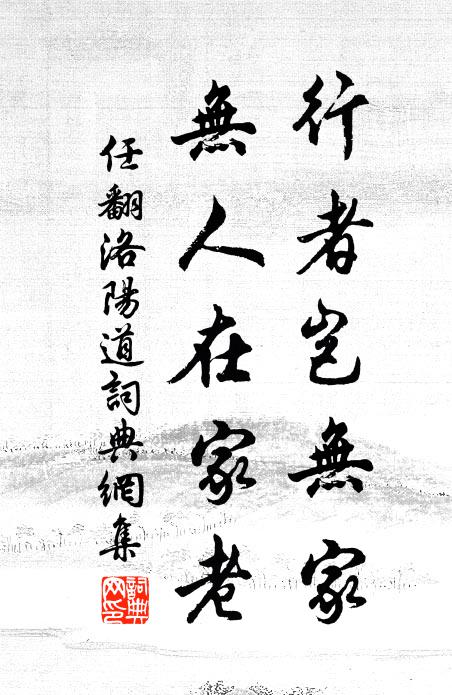 行者岂無家
無人在家老
任翻洛陽道詞典網集
詞典網印